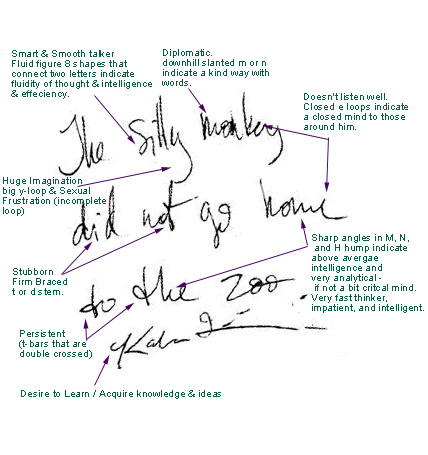 Smart & Smooth talker
Fluid figure 8 shapes that
connect two letters indicate
fluidity of thought & intelligence
& effeciency.
Diplomatic.
downhill slanted m or n
indicate a kind way with
words.
Doesn't listen well.
Closed e loops indicate
a closed mind to those
around him.
The silly monkey
Huge Imagination
big y-loop & Sexual
Frustration (incomplete
loop)
did not go home
Sharp angles in M, N,
and H hump indicate
above avergae
intelligence and
very analytical -
if not a bit critcal mind.
Very fast thinker,
impatient, and intelligent.
Stubborn
Firm Braced
t or d stem.
to the zoo
Persistent
(t-bars that are
double crossed)
Desire to Learn / Acquire knowledge & ideas